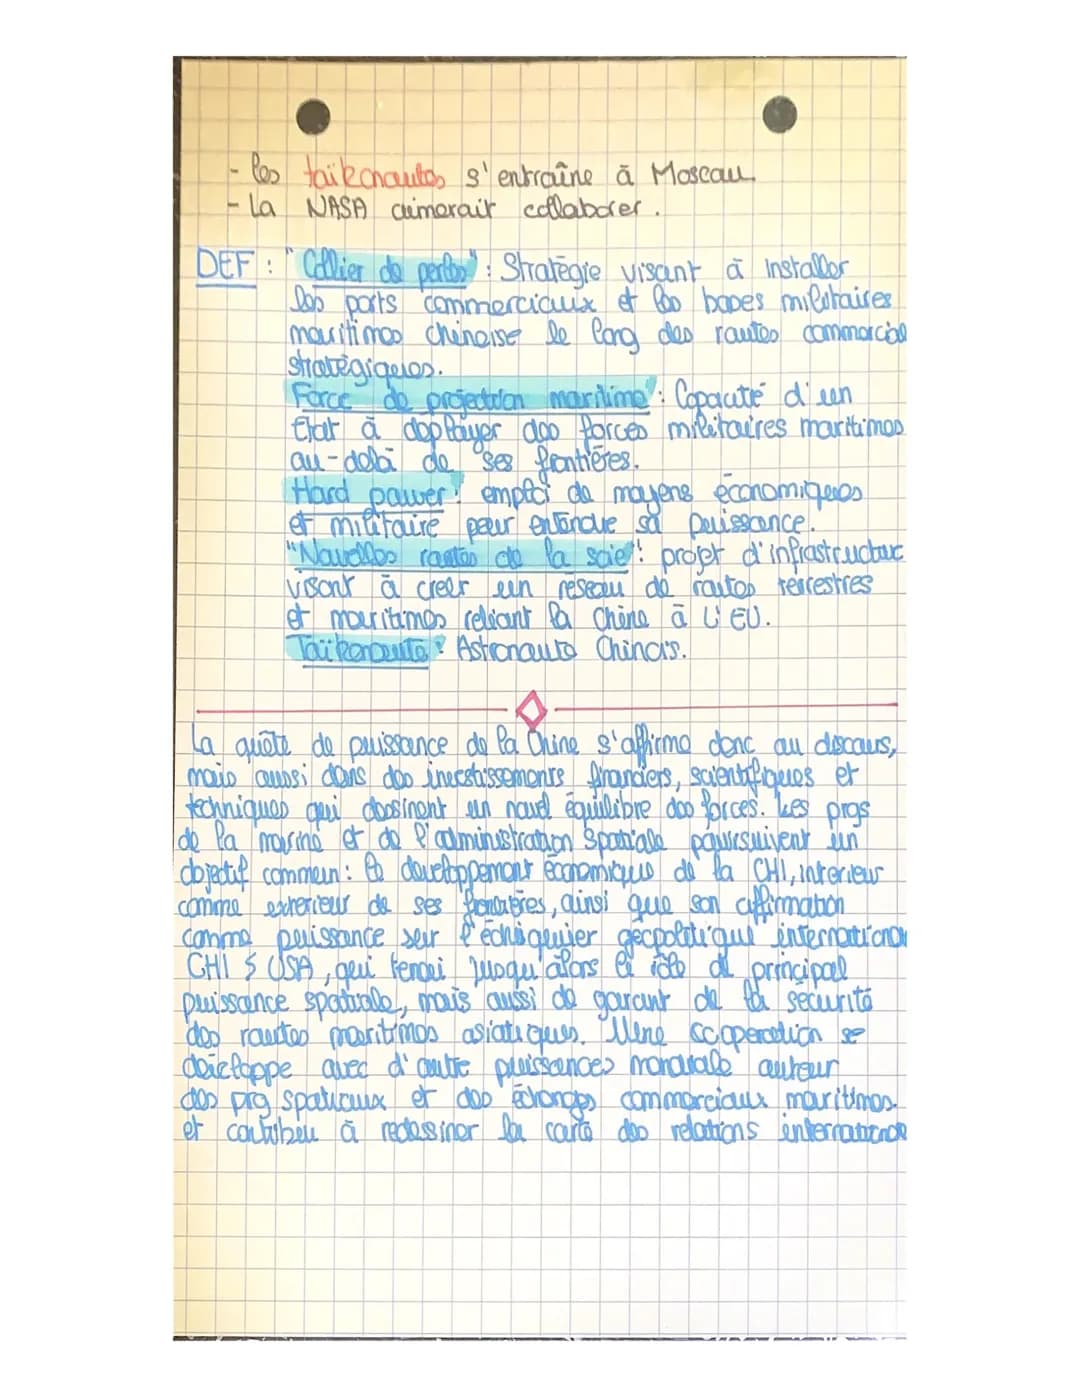 - les taïkonautes s'entraîne à Moscou
- la NASA aimerait collaborer.
DEF : "Collier de perles" : Stratégie visant à installer
les ports commerciaux et les bases militaires
maritimes chinoise le long des routes commercial
stratégiques.
Force de projection maritime" : Capacité d'un
Etat à déployer des forces militaires maritimes
au-delà de ses frontières.
Hard power : emploi de moyens économiques
et militaire pour entendre sa puissance.
"Nouvelles routes de la soie" : projet d'infrastructure
visant à créer un réseau de routes terrestres
et maritimes reliant la Chine à L'EU.
Taïkonaute : Astronaute Chinois.
La quête de puissance de la Chine s'affirme donc au discours,
mais aussi dans des investissements financiers, scientifiques et
techniques qui dessinent un nouvel équilibre des forces. Les progs
de la marine et de l'administration spatiale poursuivent un
objectif commun : le développement économique de la CHI, interieur
comme exterieur de ses frontières, ainsi que son affirmation
comme puissance sur l'échiquier géopolitique international
CHI $ USA, qui tenai jusqu'alors le rôle de principal
puissance spatiale, mais aussi de garant de la sécurité
des routes maritimes asiatiques. Une cooperation se
développe avec d'autre puissances mondiale autour
des prg spatiaux et des échanges commerciaux maritimes.
et contribeu à redessiner la carte des relations internationale